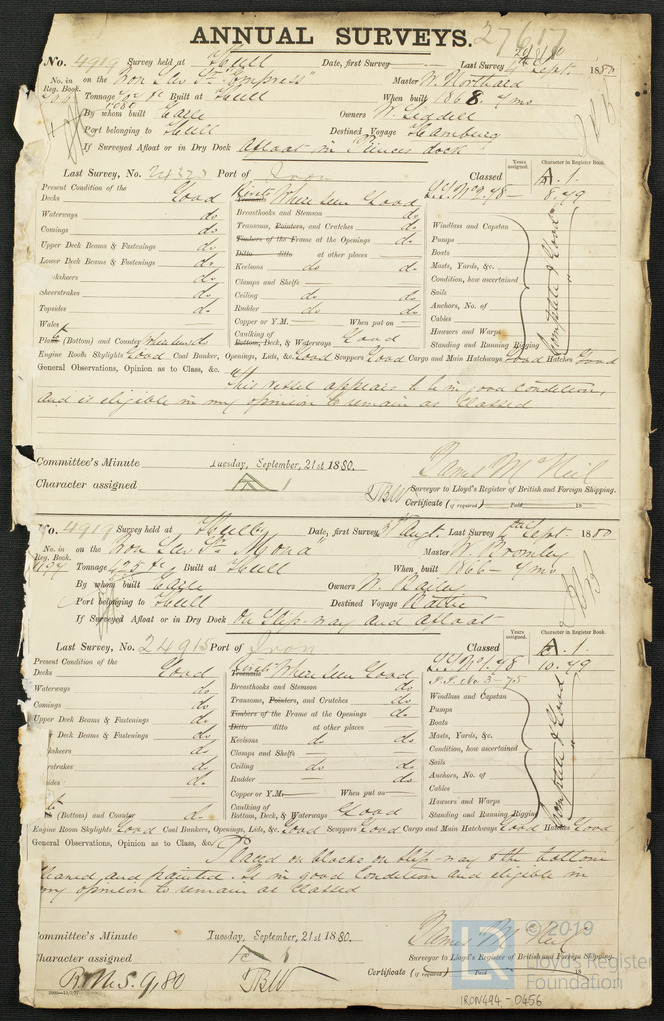 ANNUAL SURVEYS. 27617
No. 4919 Survey held at Hull Date, first Survey Last Survey 4th Sept. 1880
No. in Reg. Book. on the Iron Scw Sr "Empress" Master W.
Tonnage Built at Hull When built 1868 - 4/mo
By whom built Earle Owners W. Liddell
Port belonging to Hull Destined Voyage Hamburg
If Surveyed Afloat or in Dry Dock Afloat in Princes dock
Last Survey, No. Port of Iron Classed Years assigned. Character in Register Book.
A. 1
8.79
Present Condition of the
Decks Good Rivets Where seen Good
Waterways do Breasthooks and Stemson do Windlass and Capstan
Comings do Transoms, Pointers, and Crutches do Pumps
Upper Deck Beams & Fastenings do Timbers of the Frame at the Openings do Boats
Lower Deck Beams & Fastenings do Ditto ditto at other places Masts, Yards, &c.
ksheers do Keelsons do do Condition, how ascertained
Sheerstrakes do Clamps and Shelfs Sails
Topsides do Ceiling do do Anchors, No. of
Rudder do do Cables
Wales Copper or Y.M. When put on Hawsers and Warps
Plank (Bottom) and Counter Where seen do Caulking of Bottom, Deck, & Waterways Good Standing and Running Rigging
Complete & Good
Engine Room Skylights Good Coal Bunker, Openings, Lids, &c. Good Scuppers Good Cargo and Main Hatchways Good Hatches Good
General Observations, Opinion as to Class, &c.
This vessel appears to be in good condition,
and is eligible in my opinion to remain as Classed
Committee's Minute Tuesday, September, 21st 1880.
James McNeil
Character assigned A 1 TBW Surveyor to Lloyd's Register of British and Foreign Shipping.
Certificate (if required) Paid 18
No. 4919 Survey held at Hull Date, first Survey 31 Augt. Last Survey Sept. 1880
No. in Reg. Book. on the Iron Scw Sr Mona Master W. Bromley
Tonnage Built at Hull When built 1866 - 4/mo
By whom built Earle Owners W. Bailey
Port belonging to Hull Destined Voyage Baltic
If Surveyed Afloat or in Dry Dock On Slip-way and Afloat
Last Survey, No. 24915 Port of Iron Classed Years assigned. Character in Register Book.
A. 1
10.79
Present Condition of the
Decks Good Rivets Where seen Good
Waterways do Breasthooks and Stemson do Windlass and Capstan
Comings do Transoms, Pointers, and Crutches do Pumps
Upper Deck Beams & Fastenings do Timbers of the Frame at the Openings do Boats
Deck Beams & Fastenings do Ditto ditto at other places Masts, Yards, &c.
ksheers do Keelsons do do Condition, how ascertained
rstrakes do Clamps and Shelfs Sails
sides do Ceiling do do Anchors, No. of
Rudder do Cables
Copper or Y.M. When put on Hawsers and Warps
(Bottom) and Counter do Caulking of Bottom, Deck, & Waterways Good Standing and Running Rigging
Complete & Good
Engine Room Skylights Good Coal Bunkers, Openings, Lids, &c. Good Scuppers Good Cargo and Main Hatchways Good Hatches Good
General Observations, Opinion as to Class, &c.
Placed on blocks on slip way & the bottom
cleaned and painted. Is in good Condition and eligible in
my opinion to remain as Classed
ommittee's Minute Tuesday, September, 21st 1880.
James McNeil
haracter assigned Surveyor to Lloyd's Register of British and Foreign Shipping.
R.M.S. 9,80 TBW Certificate (if required) Paid 18
© 2019
Lloyd's Register
Foundation
LR
IRON494-0456